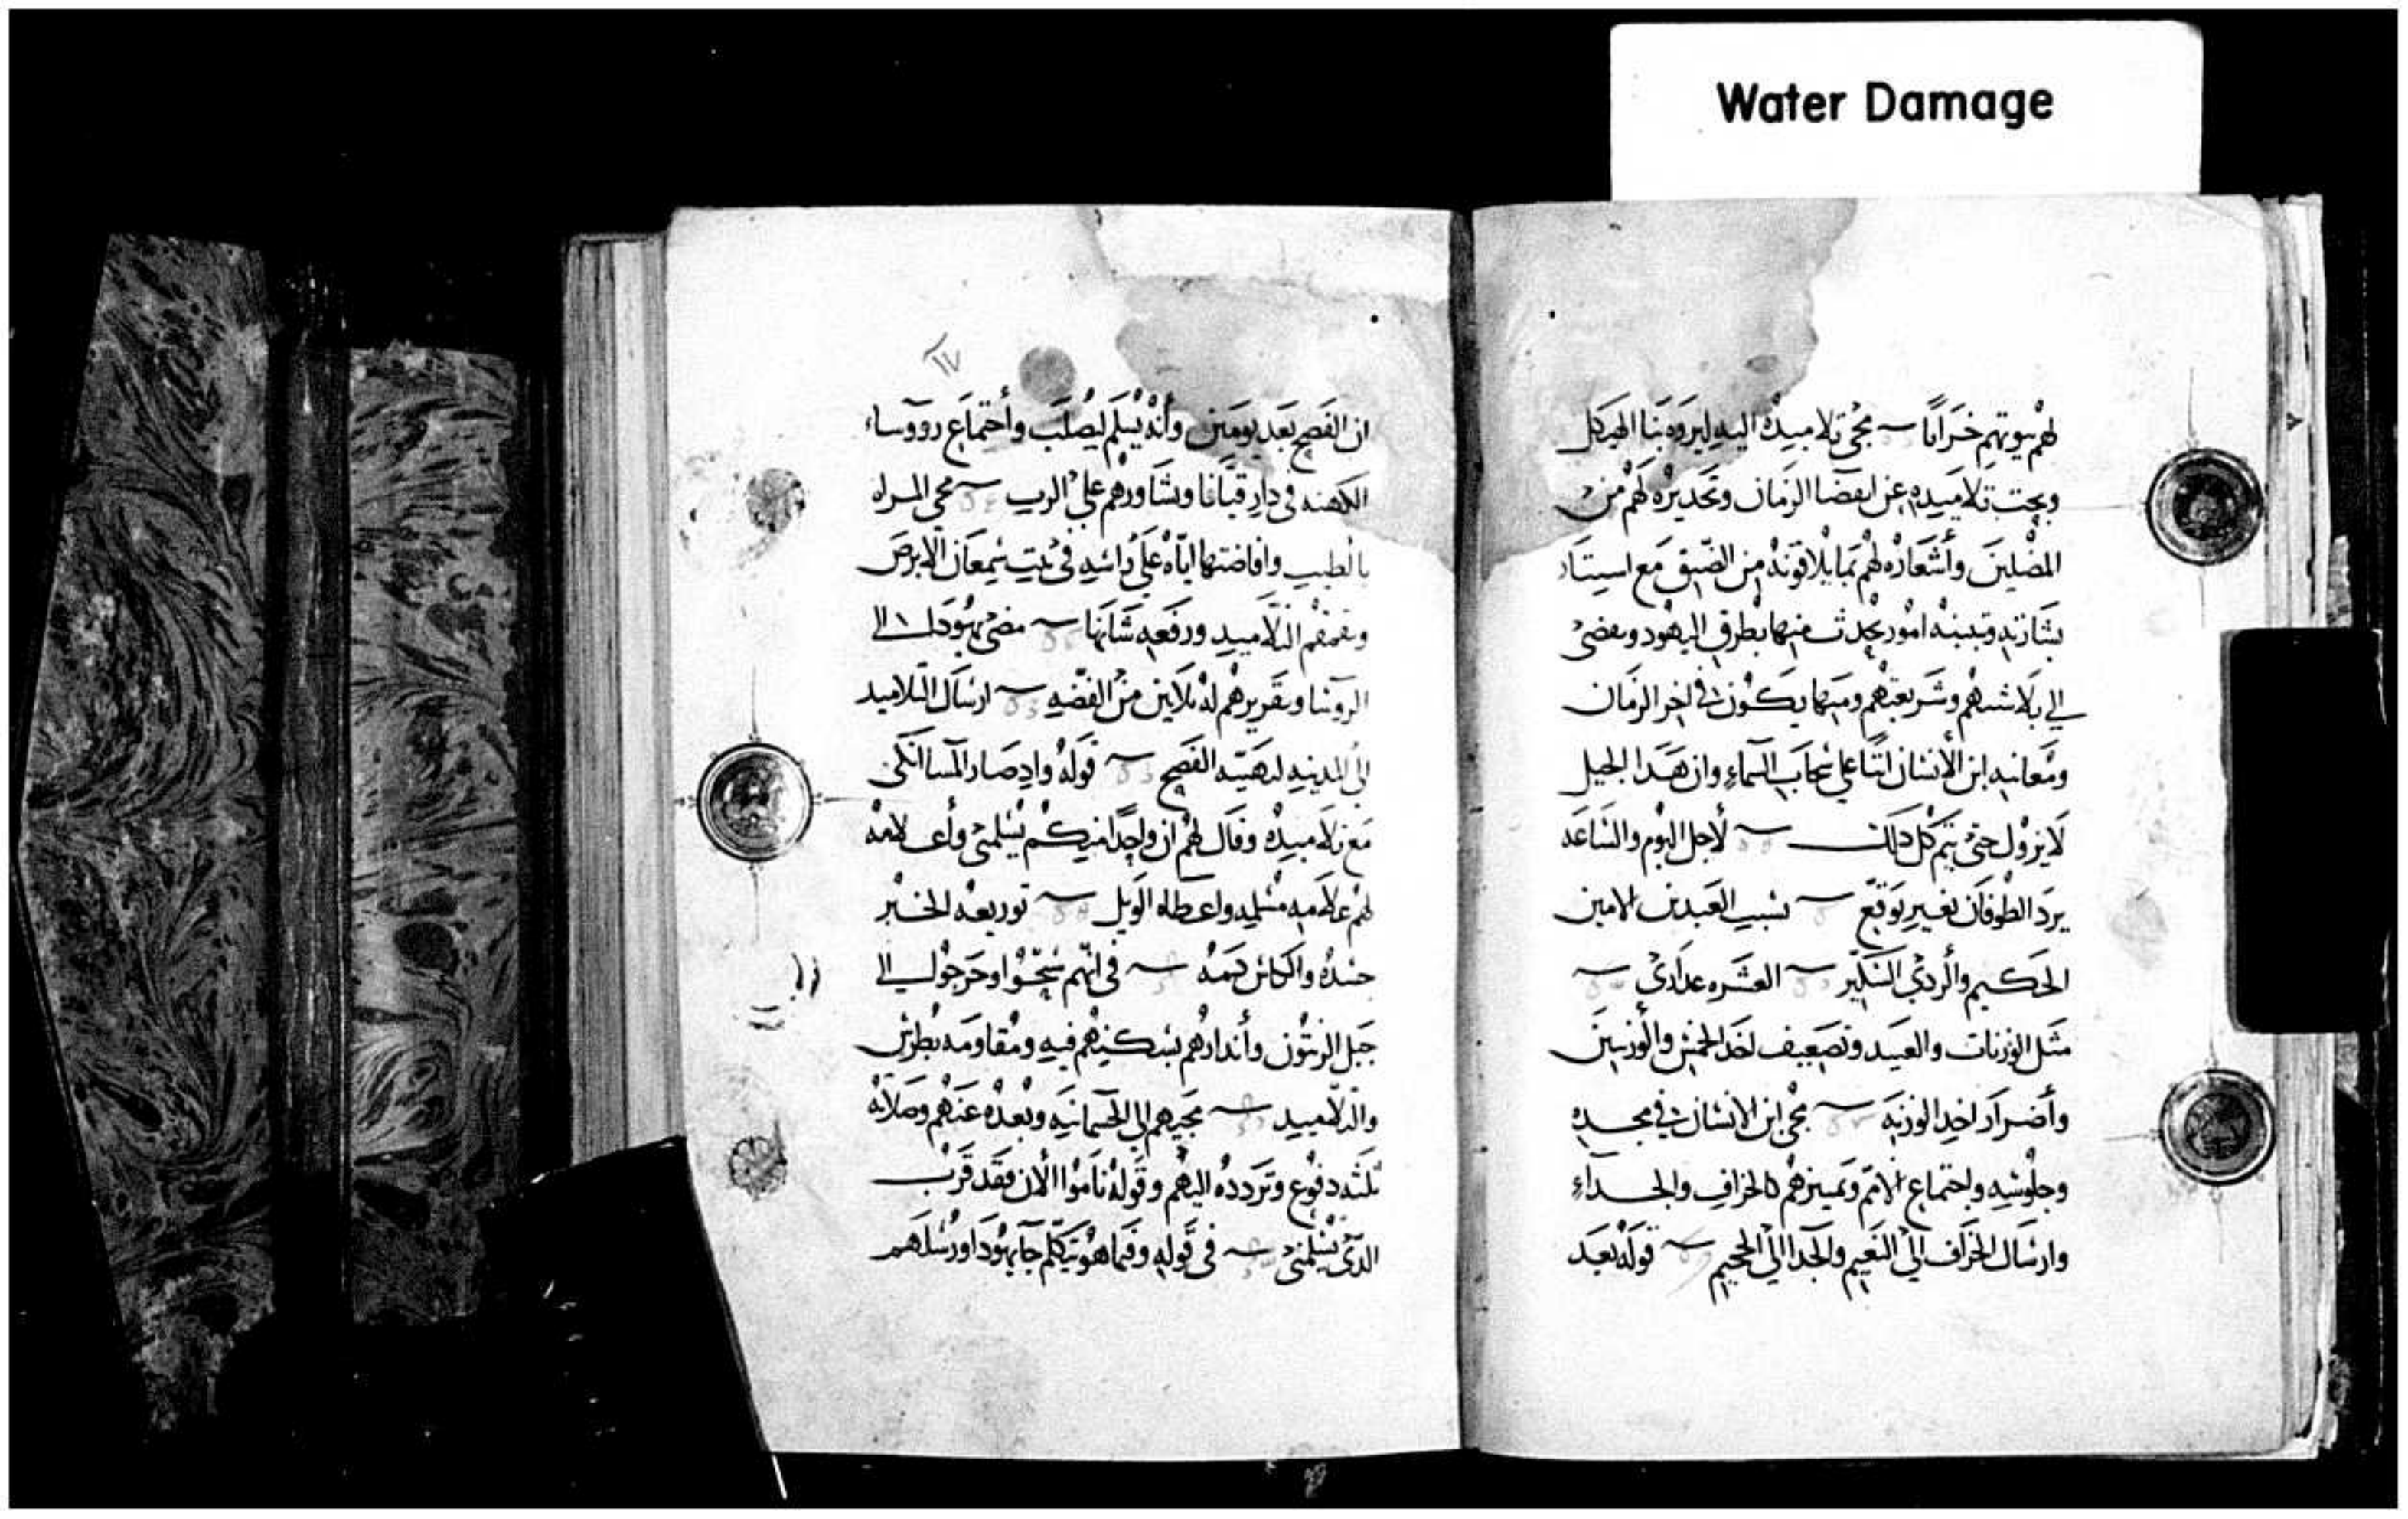 Water Damage
لهم بيوتهم خرابا مجى تلاميده اليه ليروه بنا الهيكل
وبحت تلاميده عن انقضا الزمان وتحديره لهم من
المضلين وأشعاره لهم بما يلاقونه من الضيق مع استتار
بشارته وتبينه امور يحدث منها بطرق اليهود ويفضى
الى بلاشيهم وشريعتهم ومنها يكون في اخر الزمان
ومعاينه ابن الأنسان اتيا على سحاب السماء وان هدا الجيل
لا يزول حتى يتم كل دلك لأجل اليوم والساعه
يرد الطوفان بغير توقع بسبب العبدين الامين
الحكيم والردي السكير العشره عدارى
مثل الوزنات والعبيد وتضعيف اخد الخمس والوزنتين
وأضرار اخد الوزنه مجى ابن الانسان في مجده
وجلوسه واجتماع الامم وتمييزهم كالخراف والجداء
وارسال الخراف الى النعيم والجدا الى الجحيم قوله بعد
١٧
ان الفصح بعد يومين وأنه يسلم ليصلب وأجتماع رووساء
الكهنه في دار قيافا وتشاورهم على الرب مجى المراه
بالطيب وافاضتها اياه على راسه في بيت سمعان الابرص
وتقمقم التلاميد ورفعه شانها مضى يهودا الى
الروسا وتقريرهم له تلاتين من الفضه ارسال التلاميد
الى المدينه لتهيئه الفصح قوله وادصار المسا اتكى
مع تلاميده وقال لهم ان واحدا منكم يسلمنى وأعلامه
لهم علامه مسلمه واعطاه الويل توريعه الخبر
جسده والكاس دمه في انهم سبحوا وخرجوا الى
جبل الزيتون وأندارهم بشكهم فيه ومقاومه بطرس
والتلاميد مجيهم الى الجسمانيه وبعده عنهم وصلاته
تلته دفوع وتردده اليهم وقوله ناموا الان فقد قرب
الدى يسلمنى في قوله وفيما هو يتكلم جا يهودا ورسلهم